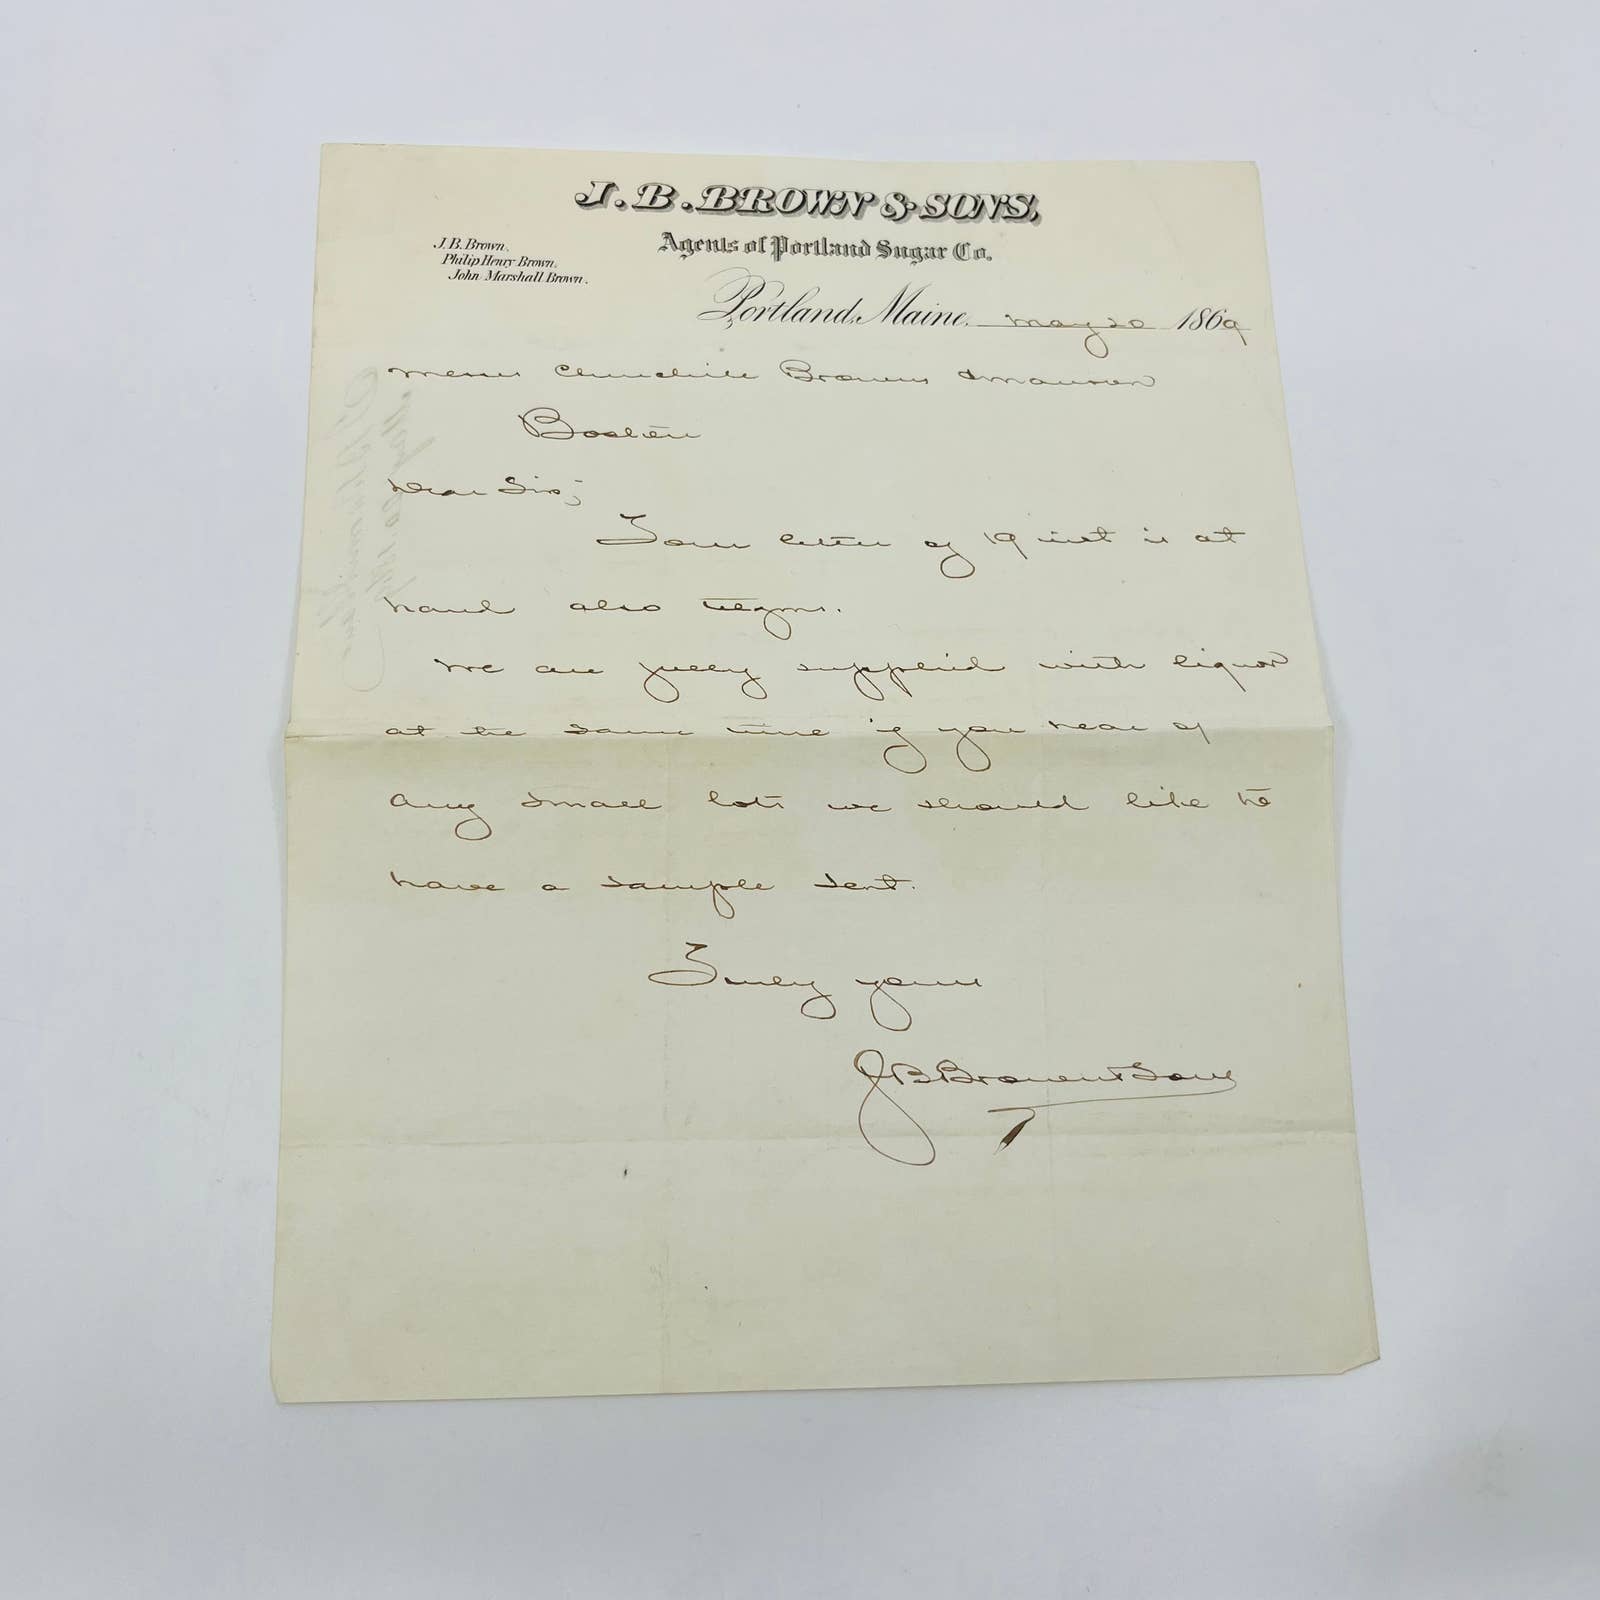 J. B. BROWN & SONS,
Agents of Portland Sugar Co.
J. B. Brown.
Philip Henry Brown.
John Marshall Brown.
Portland, Maine, May 20 1869
Messrs Churchill Browns & Manson
Boston
Dear Sirs;
Your letter of 19 inst is at
hand also telegms.
We are fully supplied with liquor
at the same time if you hear of
any small lots we should like to
have a sample sent.
Truly yours
J B Brown & Sons